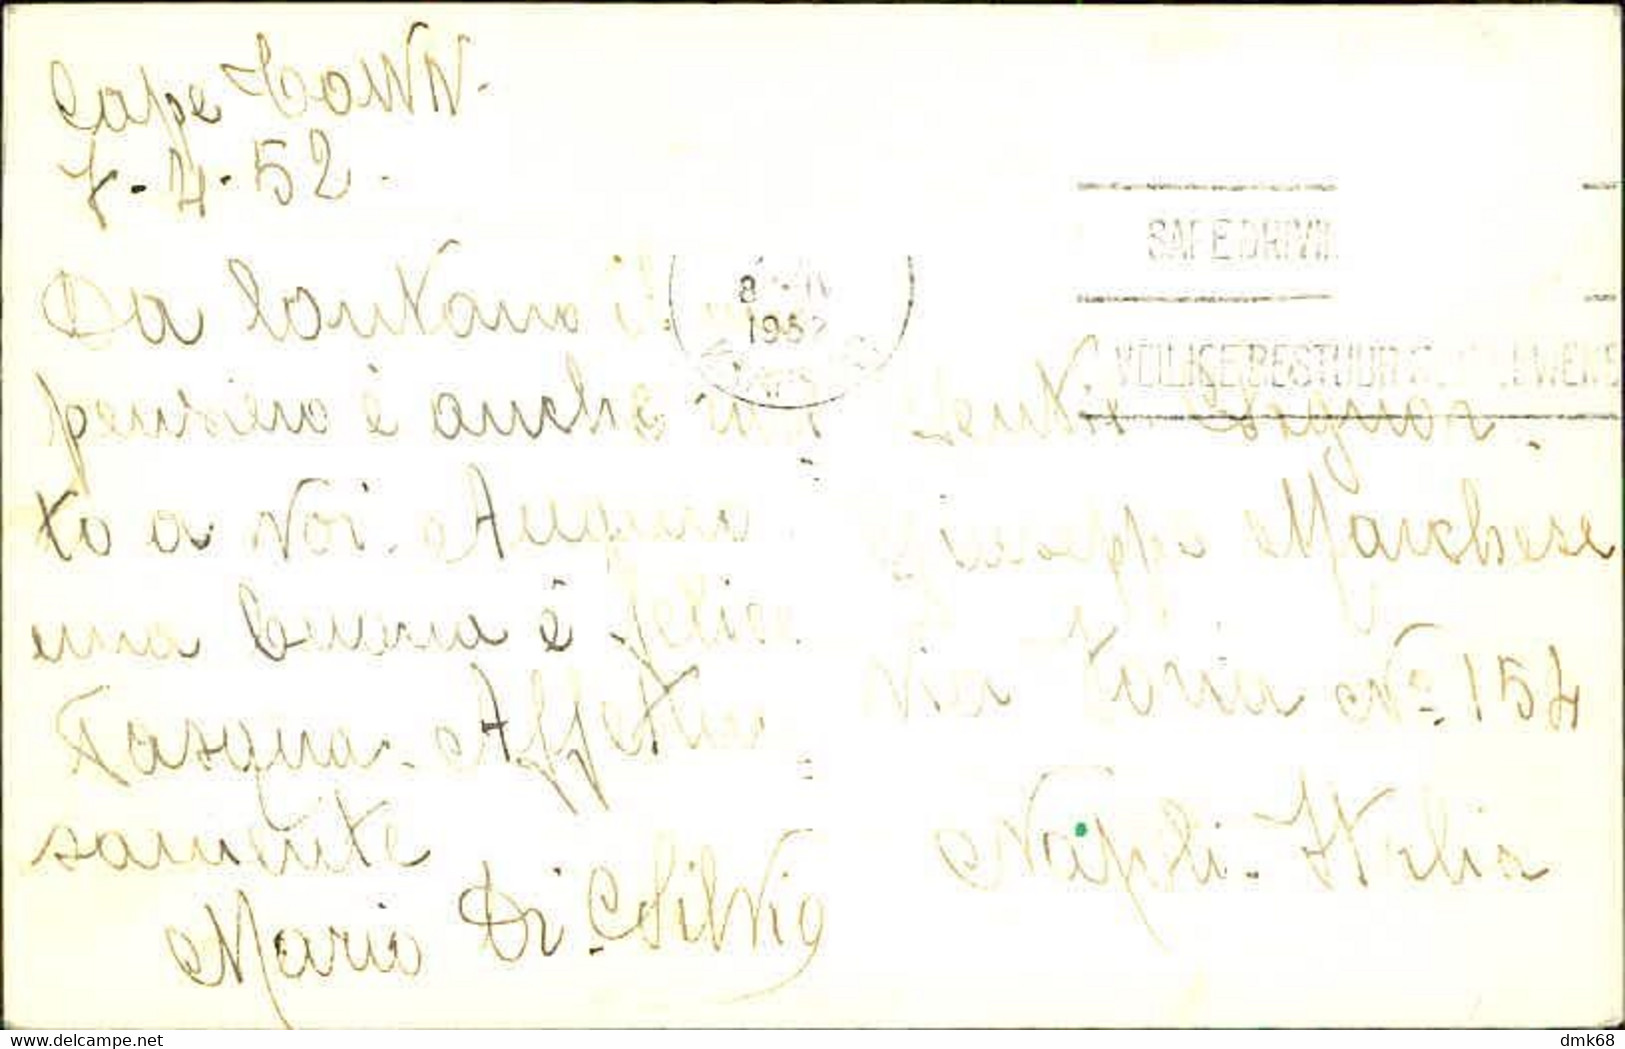 Cape ToWN.
7-4-52.
Da lontano il mio
pensiero è anche rivol
to a Voi. Auguro
una buona è felice
Pasqua. Affettuo
samente
Mario Di Silvio
8
1952
SAFE DRIVIN
VEILIGE BESTUUR
Gentil Signor.
Giuseppe Marchese
Via Foria No 154
Napoli. Italia
dmk68